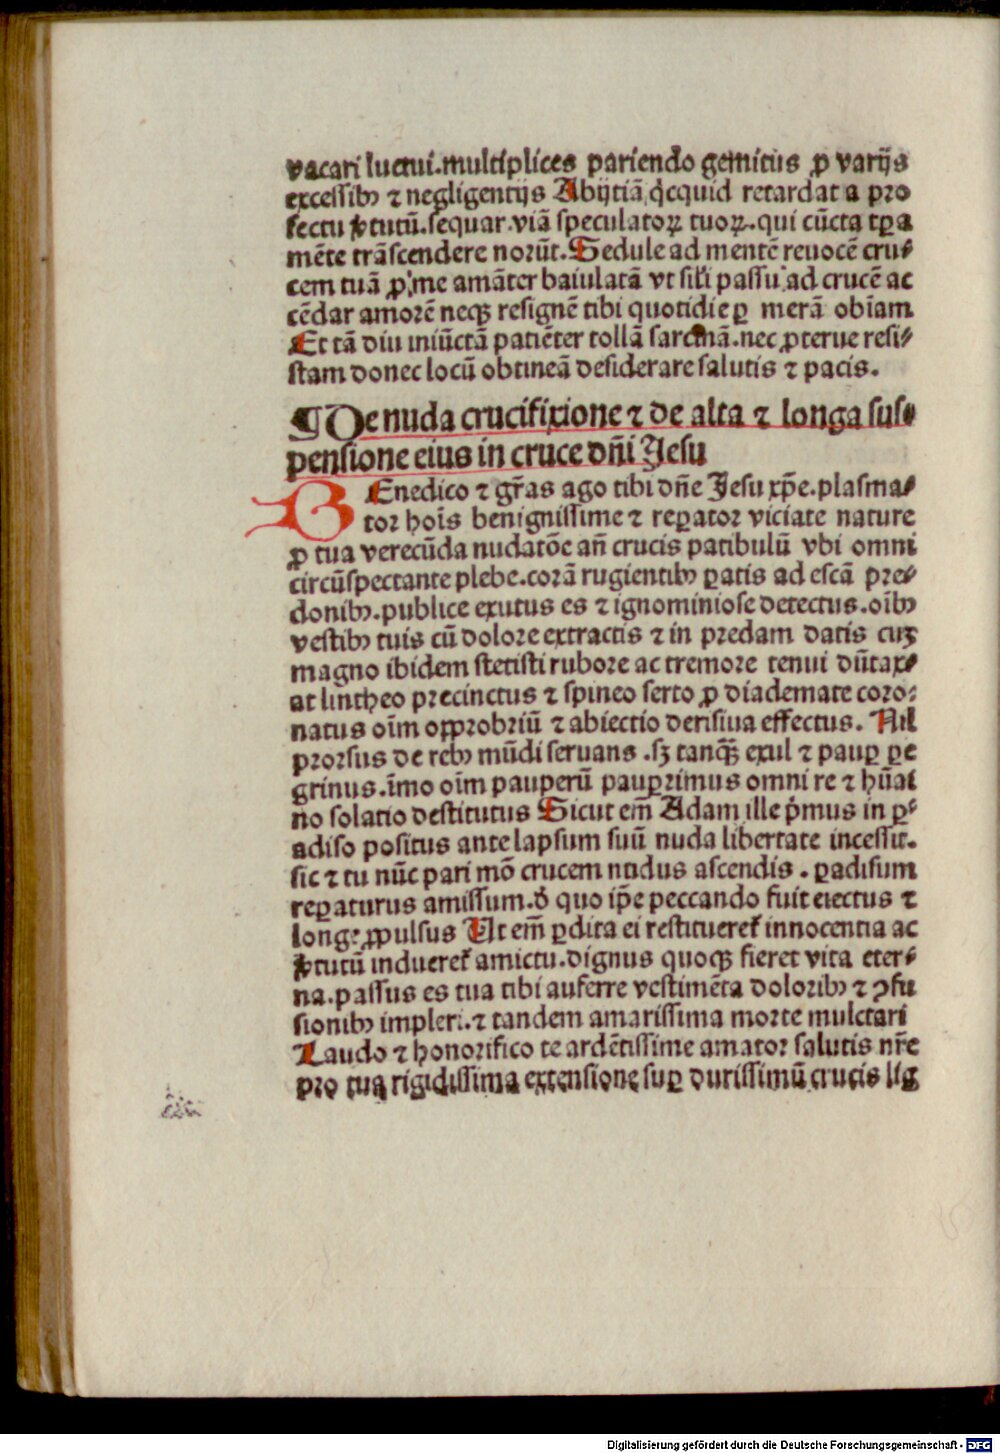 vacari luctui.multiplices pariendo gemitus ꝓ varijs
excessibꝰ ⁊ negligentijs Abijtiā q̇cquid retardat a pro
fectu ꝟtutū.sequar viā speculatoꝝ tuoꝝ.qui cūcta tꝑa
mēte trāscendere norūt.Sedule ad mentē reuocē cru⸗
cem tuā ꝓ me amāter baiulatā vt sili passu ad crucē ac
cēdar amorē neqꝫ resignē tibi quotidie ꝑ merā obīam
Et tā diu iniūctā patiēter tollā sarcinā.nec ꝓterue resi⸗
stam donec locū obtineā desiderare salutis ⁊ pacis.
¶ De nuda crucifixione ⁊ de alta ⁊ longa sus⸗
pensione eius in cruce dn̄i Jesu
BEnedico ⁊ gr̄as ago tibi dn̄e Jesu xp̄e.plasma⸗
tor hoīs benignissime ⁊ reꝑator viciate nature
ꝓ tua verecūda nudatōe an̄ crucis patibulū vbi omni
circūspectante plebe.corā rugientibꝰ ꝑatis ad escā pre⸗
donibꝰ.publice exutus es ⁊ ignominiose detectus.oībꝰ
vestibꝰ tuis cū dolore extractis ⁊ in predam datis cuꝫ
magno ibidem stetisti rubore ac tremore tenui dūtax⸗
at lintheo precinctus ⁊ spineo serto ꝓ diademate coro⸗
natus oīm opprobriū ⁊ abiectio derisiua effectus. Nil
prorsus de rebꝰ mūdi seruans .sꝫ tanqꝫ̄ exul ⁊ pauꝑ ꝑe
grinus.īmo oīm pauperū pauꝑrimus omni re ⁊ hūa⸗
no solatio destitutus Sicut em̄ Adam ille p̄mus in ꝑ⸗
adiso positus ante lapsum suū nuda libertate incessit.
sic ⁊ tu nūc pari mō crucem nudus ascendis . ꝑadisum
reꝑaturus amissum.ð quo ip̄e peccando fuit eiectus ⁊
longe ꝓpulsus Ut em̄ ꝑdita ei restitueret᷑ innocentia ac
ꝟtutū indueret᷑ amictu.dignus quoqꝫ fieret vita eter⸗
na.passus es tua tibi auferre vestimēta doloribꝰ ⁊ ꝯfu
sionibꝰ impleri.⁊ tandem amarissima morte mulctari
Laudo ⁊ honorifico te ardētissime amator salutis nr̄e
pro tua rigidissima extensione suꝑ durissimū crucis lig
Digitalisierung gefördert durch die Deutsche Forschungsgemeinschaft - DFG